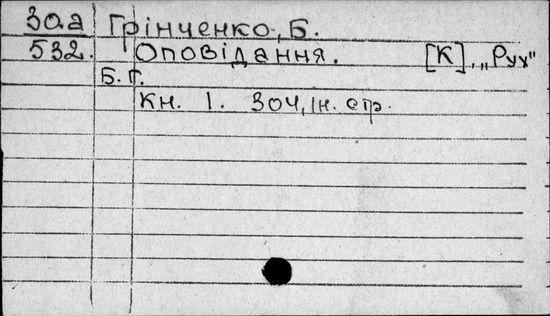 30.а Грінченко, Б.
532. Оповідання. [К], „Рух"
Б. Г.
Кн. 1. 304, ін. стр.